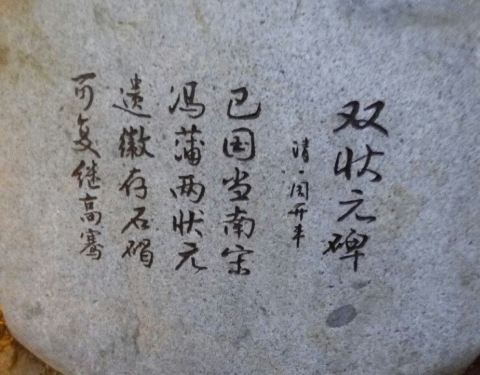 双状元碑
清·周开丰
巴国当南宋
冯蒲两状元
遗徽存石碣
可复继高骞